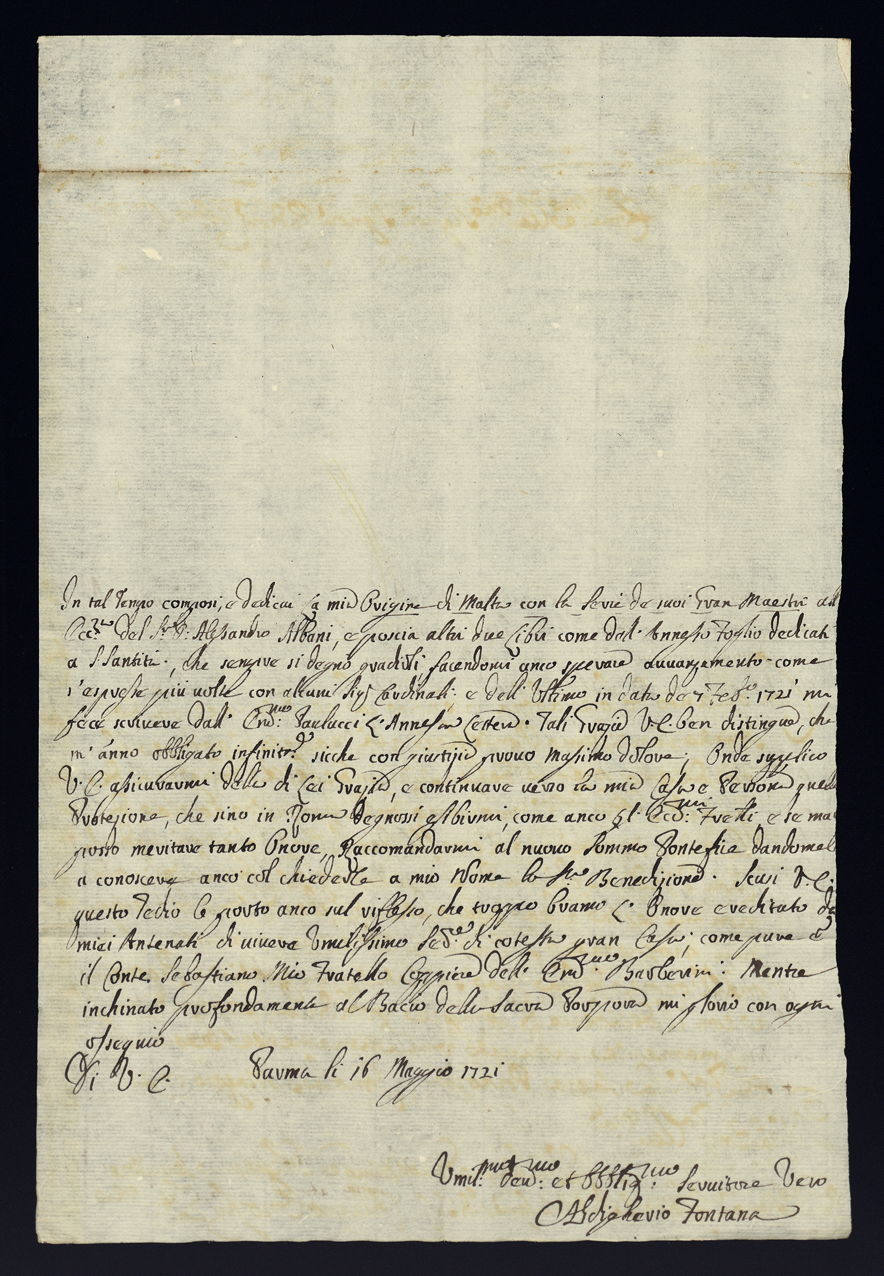 In tal Tempo composi, e dedicai la mia Origine di Malta con la Serie de suoi Gran Maestri all
Ecc.mo del S.r D. Alessandro Albani, e poscia altri due Libri come dall' Annesso foglio dedicati
a S. Santità, che sempre si degnò gradirli facendomi anco sperare avvanzamento come
s'espresse più volte con alcuni Sig.i Cardinali: e dell' Ultimo in data de 7 Feb.ro 1721 mi
fece scrivere dall' Em.mo Paulucci l'Annessa Lettera. Tali Grazie V. E. ben distingue, che
m' anno obbligato infinitam.te sicche con giustizia provo massimo dolore; Onde supplico
V. E. assicurarmi della di Lei Grazia, e continuare verso la mia Casa e Persona quella
Protezione, che sino in Roma degnossi esibirmi, come anco gl' Ecc.mi Fr'elli, e se mai
posso meritare tanto Onore, Raccomandarmi al nuovo Sommo Pontefice dandomeli
a conoscere anco col chiederle a mio Nome la S.ta Benedizione. Scusi V. E.
questo Tedio le porto anco sul riflesso, che troppo bramo l' Onore ereditato da
miei Antenati di vivere Umilissimo Ser.e di cotesta gran Casa; come pure è
il Conte Sebastiano Mio Fratello Coppiere dell' Em.mo Barberini: Mentre
inchinato profondamente al Bacio della Sacra Porpora mi glorio con ogni
ossequio
Di V. E. Parma li 16 Maggio 1721
Umil.mo dev.mo et Obblig.mo Servitore Vero
Aldigherio Fontana